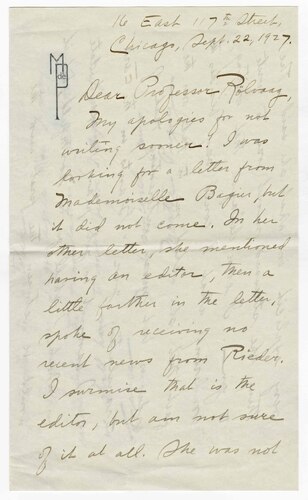 16 East 117th Street,
Chicago, Sept. 22, 1927.
Dear Professor Rolvaag,
My apologies for not
writing sooner! I was
looking for a letter from
Mademoiselle Bagur, but
it did not come. In her
other letter, she mentioned
having an editor, then a
little farther in the letter,
spoke of receiving no
recent news from Rieder.
I surmise that is the
editor, but am not sure
of it at all. She was not